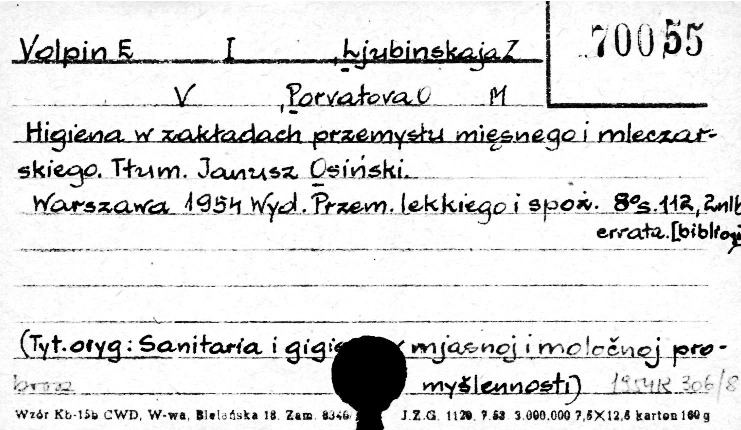 Volpin E I , Ljubinskaja Z
70055
V , Porvatova O M
Higiena w zakładach przemysłu mięsnego i mleczar-
skiego. Tłum. Janusz Osiński.
Warszawa 1954 Wyd. Przem. lekkiego i spoż. 8° s. 112, 2nlb
errata. [bibliogr
(Tyt. oryg: Sanitaria i mjasnoj i moločnoj pro-
myšlennosti) 1954K 306/8
Wzór Kb-15b CWD, W-wa, Bielańska 18. Zam. J.Z.G. 1129. 7.53 3.000.000 7,5×12,5 karton 160 g